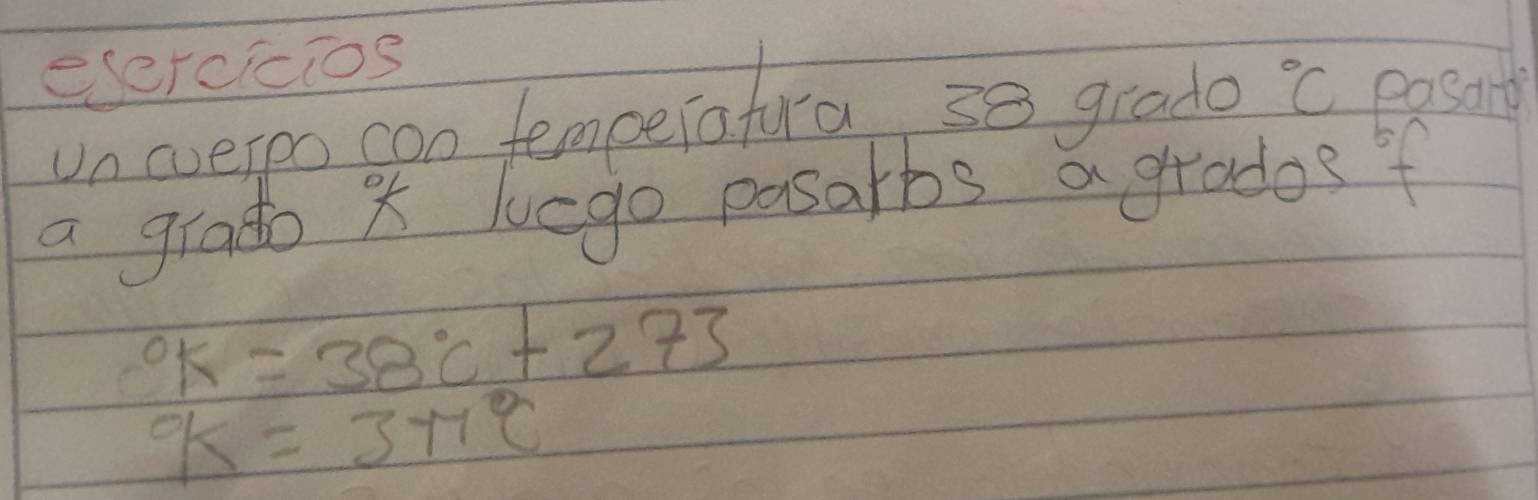 esercicios
un cuerpo con temperatura 38 grado °C pasarlo
a grado °K luego pasarlos a grados °f
°K = 38°C + 273
°K = 311°C